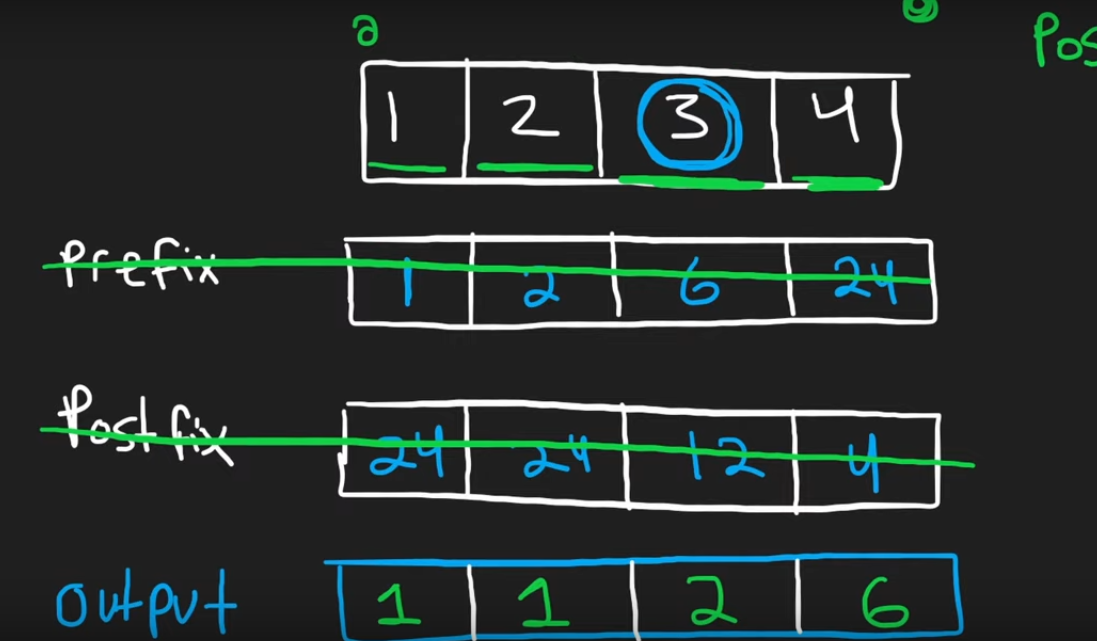 a Pos
1 2 3 4
Prefix 1 2 6 24
Postfix 24 24 12 4
output 1 1 2 6